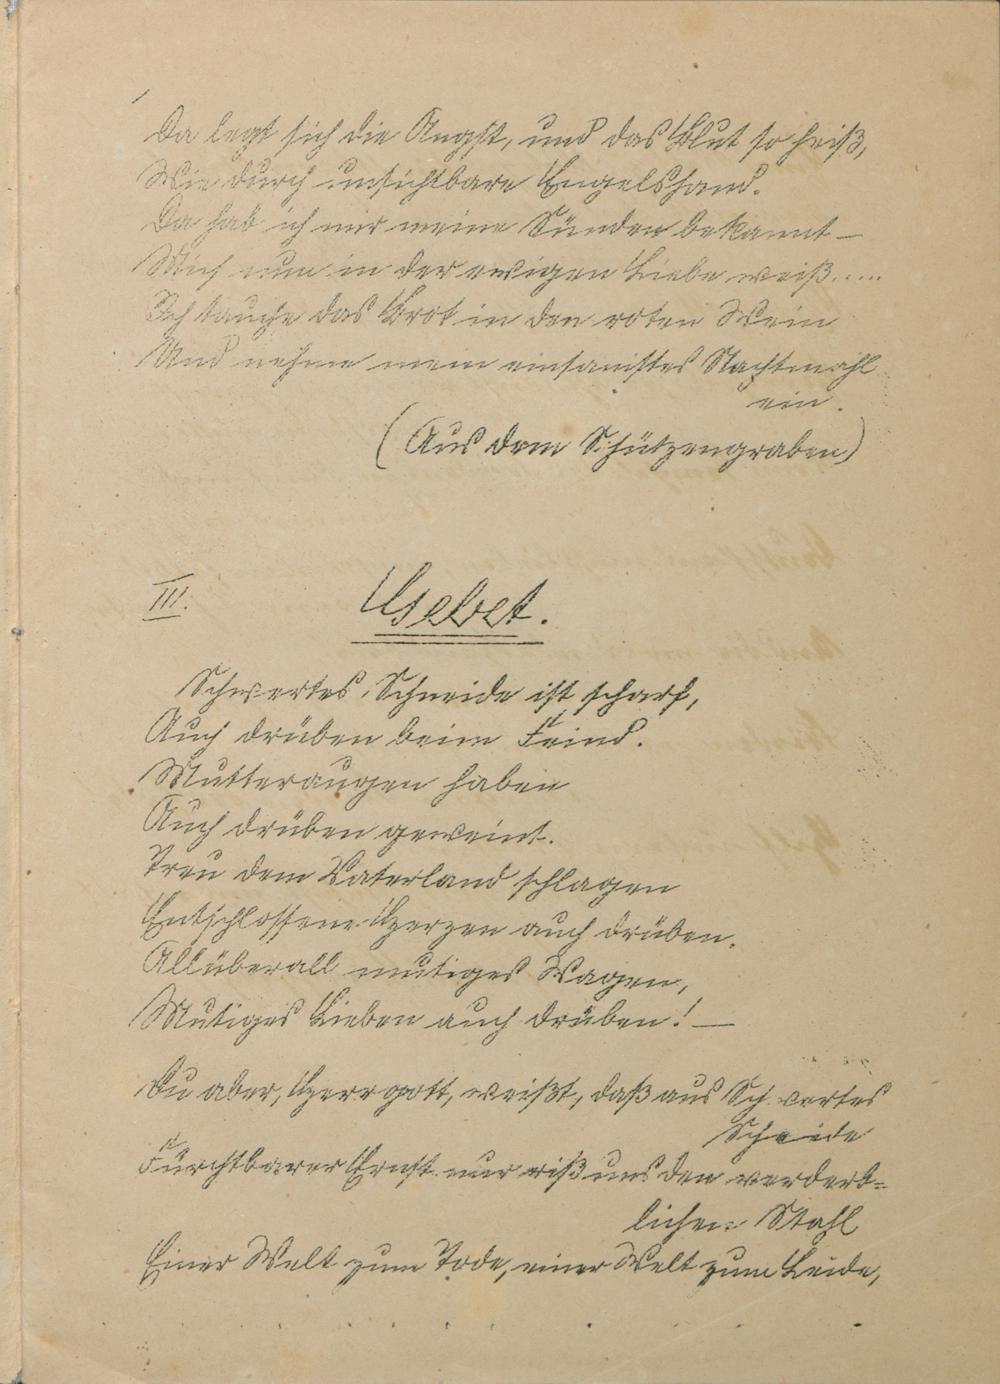 Da legt sich die Angst, und das Blut so heiß,
Wie durch unsichtbare Engelshand.
Da hab ich mir meine Sünden bekannt —
Mich nun in der ewigen Liebe weiß.....
Ich tauche das Brot in den roten Wein
Und nehme mein einsamstes Nachtmahl
ein.
(Aus dem Schützengraben)
III. Gebet.
Schwertes Schneide ist scharf,
Auch drüben beim Feind.
Mutteraugen haben
Auch drüben geweint.
Treu dem Vaterland schlagen
Entschlossene Herzen auch drüben.
Allüberall mutiges Wagen,
Mutiges Lieben auch drüben! —
Du aber, Herrgott, weißt, daß aus Schwertes
Scheide
Fürchtbarer Ernst nur riß uns den verderb=
lichen Stahl
Einer Welt zum Tode, einer Welt zum Leide,